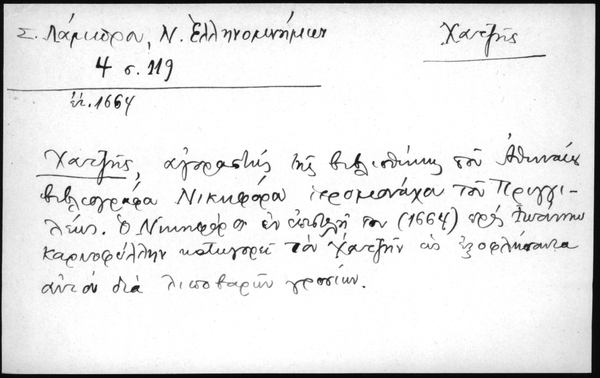 Σ. Λάμπρου, Ν. Ἑλληνομνήμων
Χατζῆς
4 σ. 119
ἔτ. 1664
Χατζῆς, ἀγοραστής τῆς βιβλιοθήκης τοῦ Ἀθηναίου
βιβλιογράφου Νικηφόρου ἱερομονάχου τοῦ Πριγγι-
λέως. Ὁ Νικηφόρος ἐν ἐπιστολῇ του (1664) πρὸς Ἰωάννην
Καρυοφύλλην κατηγορεῖ τὸν Χατζῆν ὡς ἐξοφλήσαντα
αὐτὸν διὰ λιποβαρῶν γροσίων.